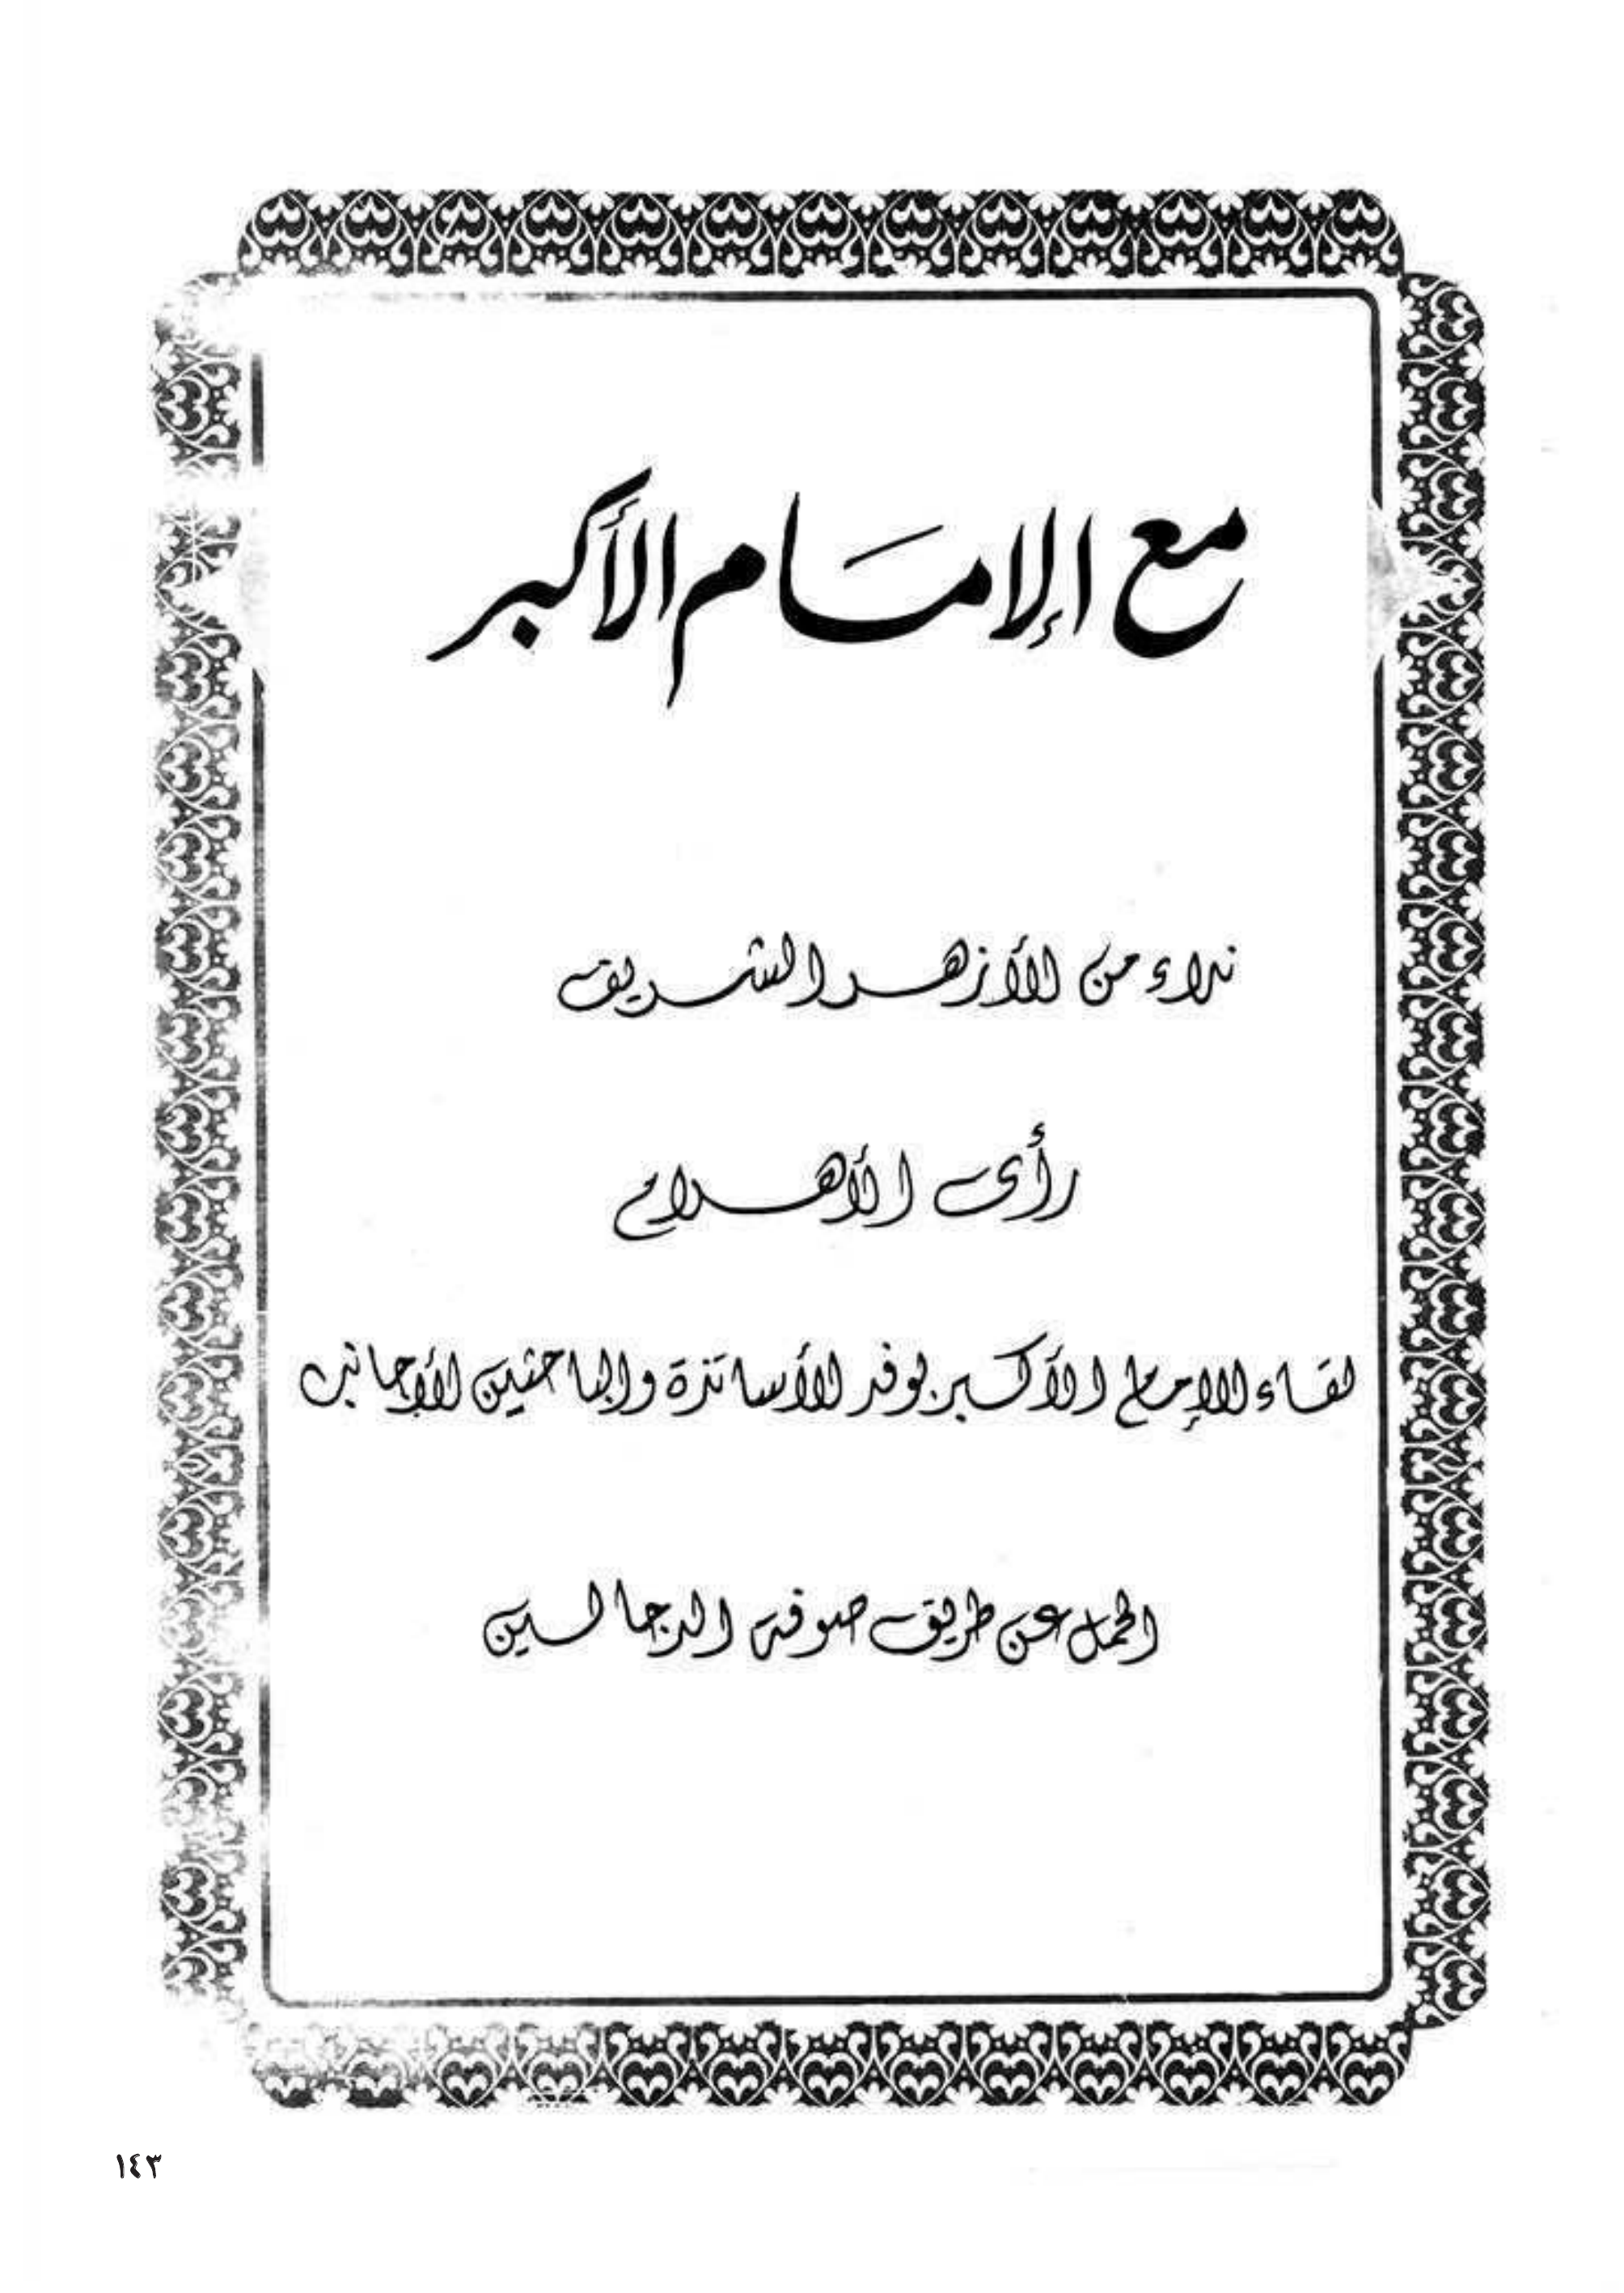 مع الإمام الأكبر
نداء من الأزهر الشريف
رأى الأهرام
لقاء الإمام الأكبر بوفد الأساتذة والباحثين الأجانب
الحمل عن طريق صوفة الدجالين
١٤٣